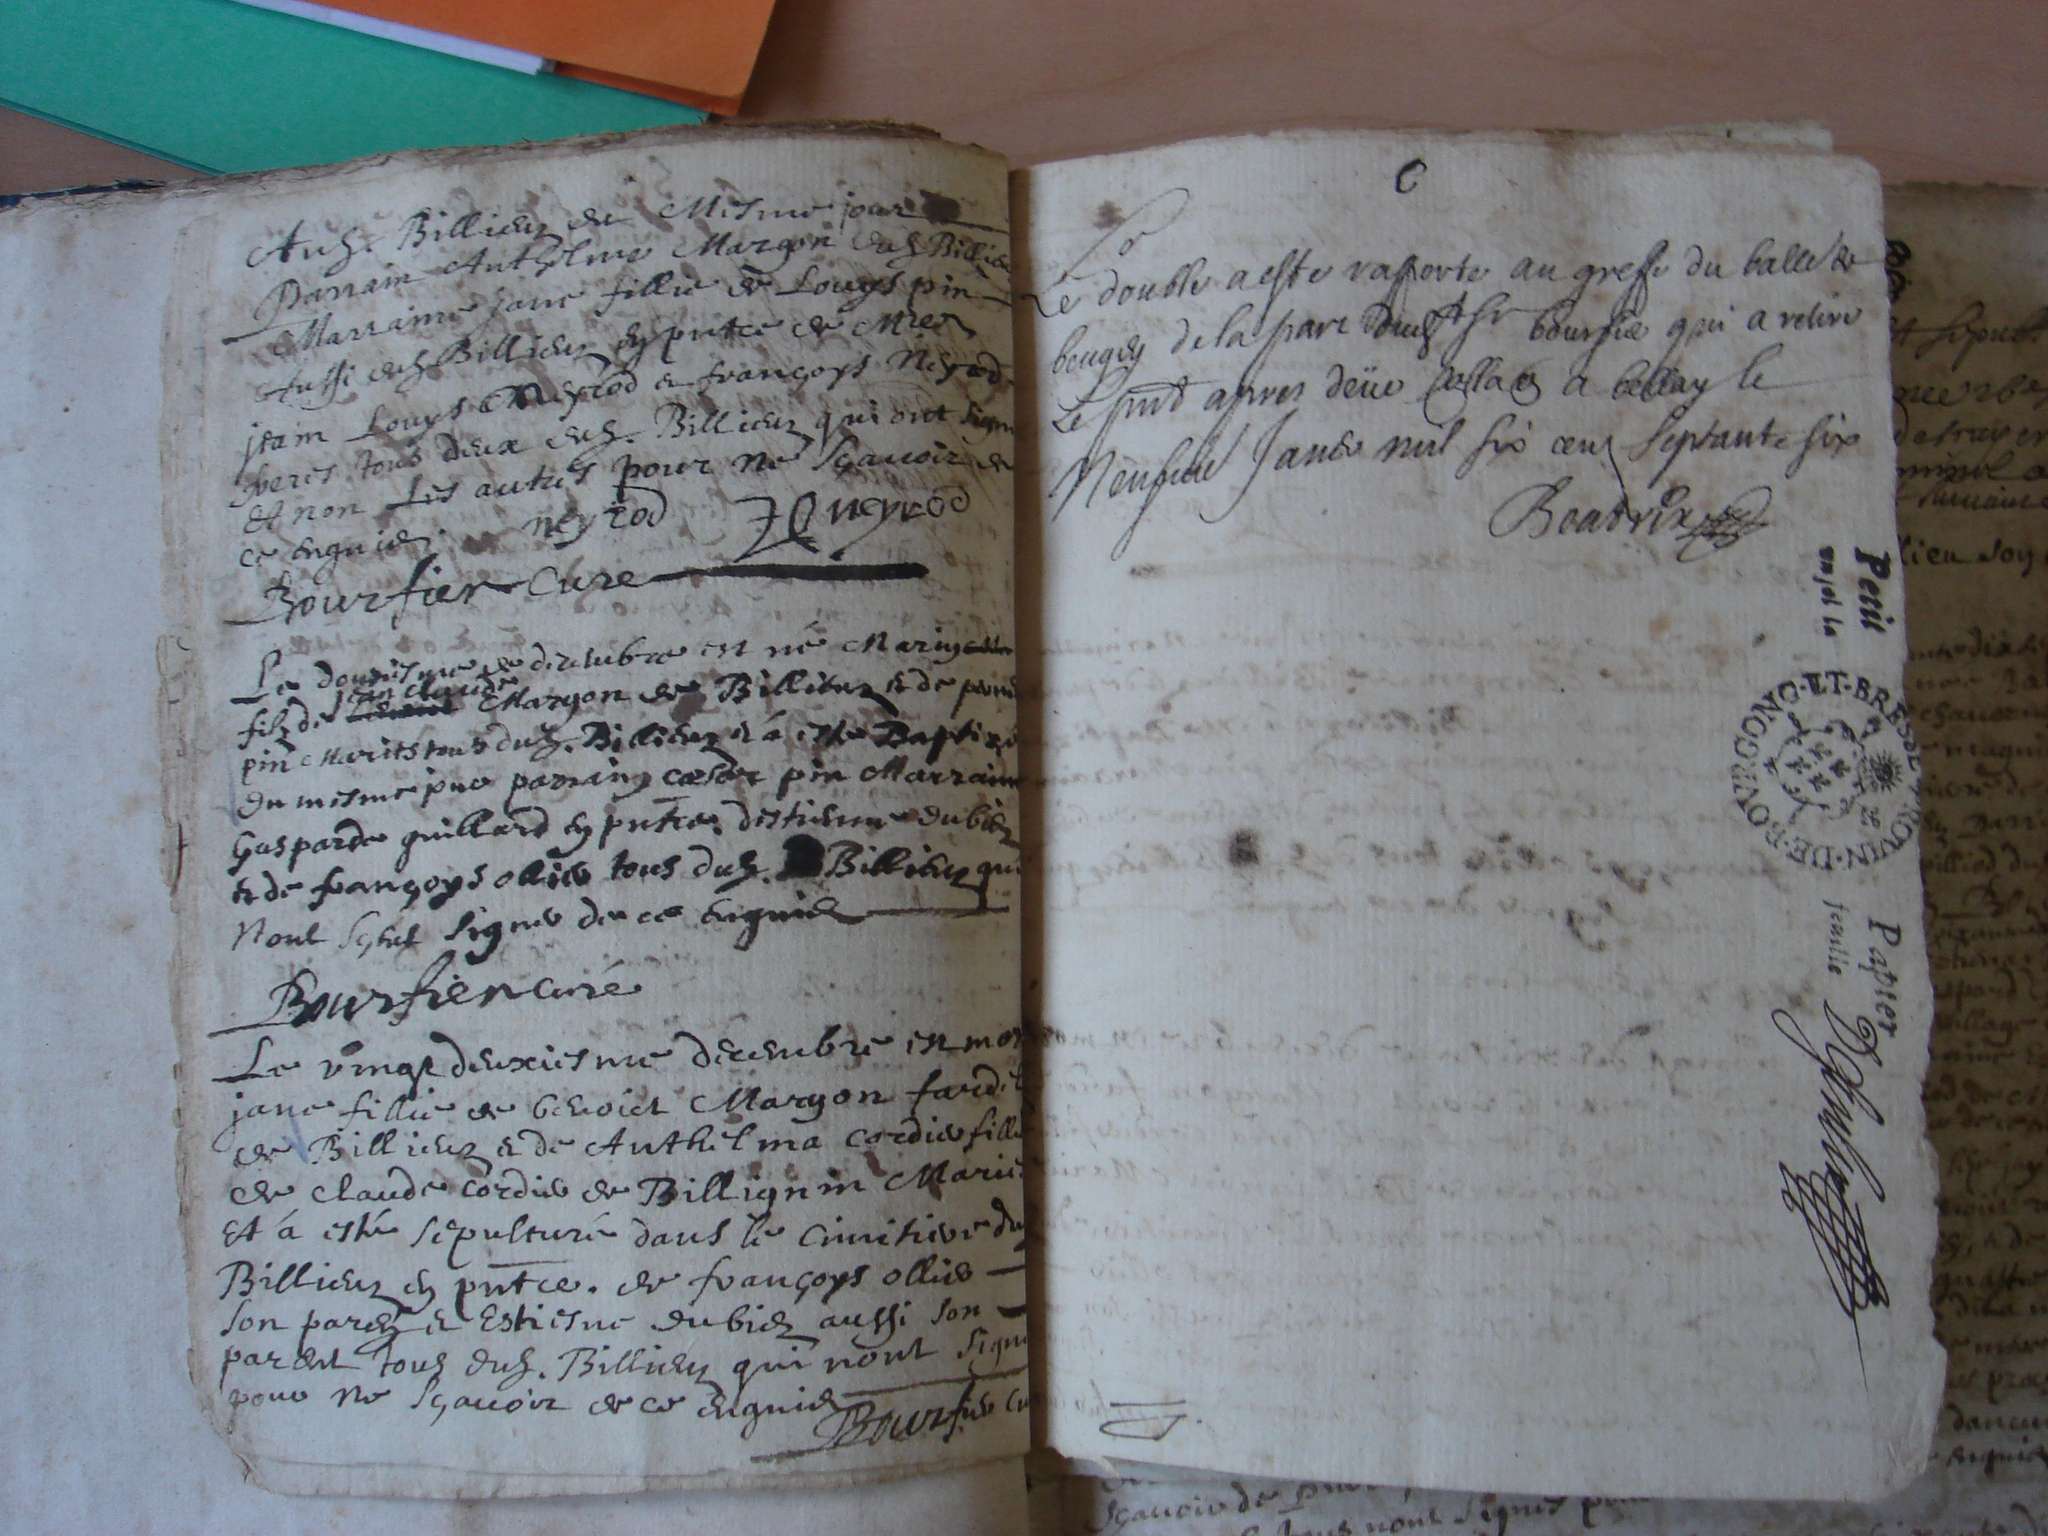 Aud. Billieu de Mesme jour
Parrain Anthelme Margon dud Billieu
Marraine jane fillie de Louys pin
Aussi dud Billieu en pntce de Mre
jtain Louys Neyrod et françoys Neyrod
freres tous deux dud. Billieu qui ont signe
Et non Les autres pour ne sçavoir de
ce enquis neyrod neyrod
Bourfier Cure
Le douziesme de decembre est né Marin
filz de jean claude Margon de Billieu et de
pin Maries tous dud. Billieu et á esté Baptizé
du mesme jour parrain cæsar pin Marraine
Gasparde guillard en pntce destienne dubiez
et de françoys ollier tous dud. Billieu qui
Nont sçeu signer de ce enquis
Bourfier curé
Le vingt deuxiesme decembre est mor
jane fillie de benoict Margon fardel
de Billieu et de Anthelma cordier fillie
de claude cordier de Billignin Maries
Et á esté sepulturé dans le cimitiere du
Billieu en pntce. de françoys ollier
son parent et Estiesne dubiez aussi son
parent tous dud. Billieu qui nont signe
pour ne sçavoir de ce enquis
Bourfier cu
C
Le double a este rapporte au greffe du balle de
beugey de la part dud sr bourfier qui a retire
le pnt apres deüe colla a bellay le
Neufvie Janvr mil six cens septante six
Beatrix
Petit Papier
feuille
DE BOVRGONG ET BRESSE